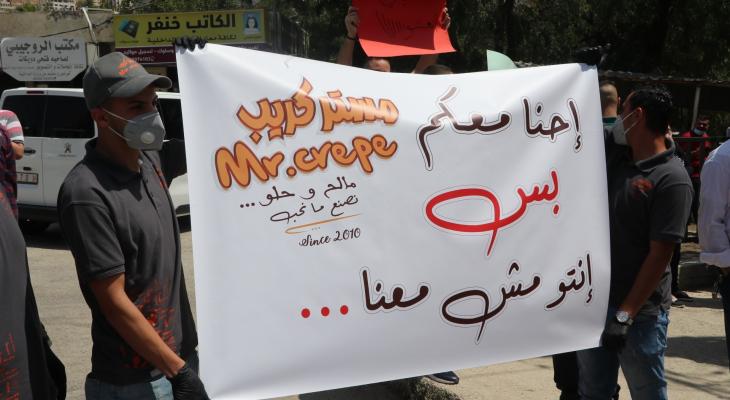 الكاتب خنفر
مكتب الروجيبي
إحنا معكم
بس
إنتو مش معنا ...
مستر كريب
Mr.crepe
مالح و حلو ...
نصنع ما تحب
Since 2010